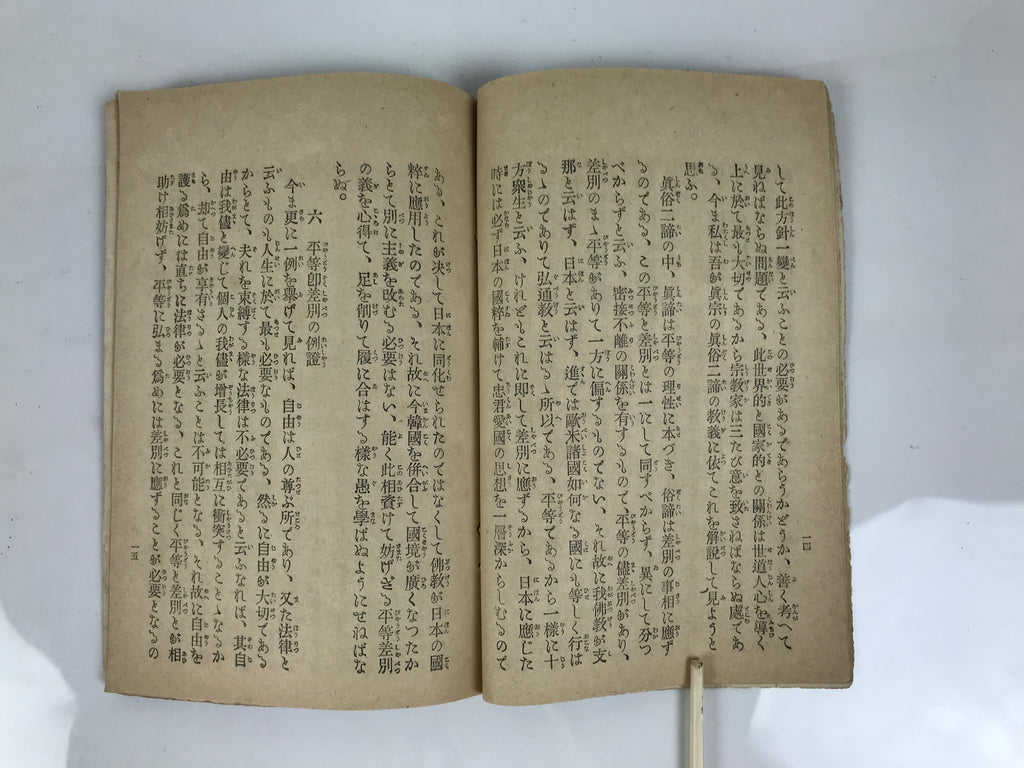 して此方針一變と云ふことの必要があるであらうかどうか、善く考へて
見ねばならぬ問題である、此世界的と國家的との關係は世道人心を導く
上に於て最も大切であるから宗教家は三たび意を致さねばならぬ處であ
る、今ま私は吾が眞宗の眞俗二諦の教義に依てこれを解説して見ようと
思ふ。
眞俗二諦の中、眞諦は平等の理性に本づき、俗諦は差別の事相に應ず
るのである、この平等と差別とは一にして同すべからず、異にして分つ
べからずと云ふ、密接不離の關係を有するもので、平等の儘差別があり、
差別のまゝ平等がありて一方に偏するものでない、それ故に我佛教が支
那と云はず、日本と云はず、進では歐米諸國如何なる國にも等しく行は
るゝのでありて弘通教と云はるゝ所以である、平等であるから一樣に十
方衆生と云ふ、けれどもこれに即して差別に應ずるから、日本に應じた
時には必ず日本の國粹を補けて忠君愛國の思想を一層深からしむるので
一四
ある、これが決して日本に同化せられたのではなくして佛教が日本の國
粹に應用したのである、それ故に今韓國を併合して國境が廣くなつたか
らとて別に主義を改むる必要はない、能く此相資けて妨げざる平等差別
の義を心得て、足を削りて履に合はする樣な愚を學ばぬようにせねばな
らぬ。
六 平等卽差別の例證
今ま更に一例を擧げて見れば、自由は人の尊ぶ所であり、又た法律と
云ふものも人生に於て最も必要なものである、然るに自由が大切である
からとて、夫れを束縛する樣な法律は不必要であると云ふなれば、其自
由は我儘と變じて個人の我儘が增長しては相互に衝突することゝなるか
ら、却て自由が享有さるゝと云ふことは不可能となる、それ故に自由を
護る爲めには直ちに法律が必要となる、これと同じく平等と差別とが相
助け相妨げず、平等に弘まる爲めには差別に應ずることが必要となるの
一五